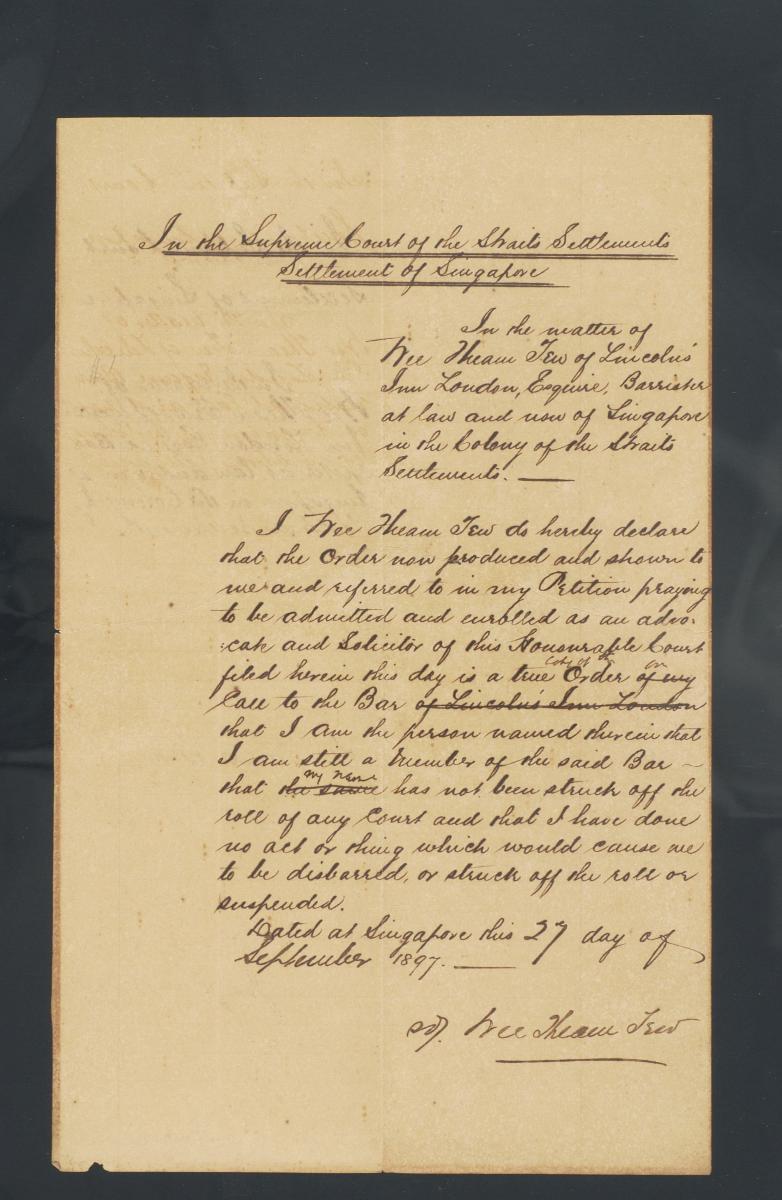 In the Supreme Court of the Straits Settlements
Settlement of Singapore
In the matter of
Wee Theam Tew of Lincoln's
Inn London, Esquire, Barrister
at law and now of Singapore
in the Colony of the Straits
Settlements. —
I Wee Theam Tew do hereby declare
that the Order now produced and shown to
me and referred to in my Petition praying
to be admitted and enrolled as an advo-
:cate and Solicitor of this Honourable Court
copy of the on
filed herein this day is a true Order of my
Call to the Bar of Lincoln's Inn London
that I am the person named therein that
I am still a Member of the said Bar —
my name
that the same has not been struck off the
roll of any Court and that I have done
no act or thing which would cause me
to be disbarred, or struck off the roll or
suspended.
Dated at Singapore this 27 day of
September 1897. —
sd/. Wee Theam Tew